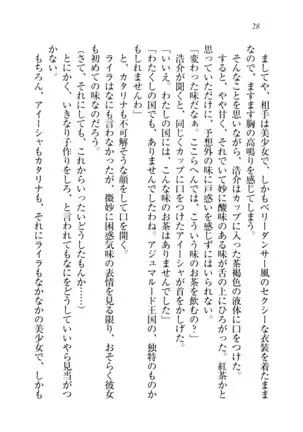 28
ましてや、相手は美少女で、しかもベリーダンサー風のセクシーな衣装を着たまま
なので、ますます胸の高鳴りを感じてしまう。
そんなことを思いながら、浩介はカップに入った茶褐色の液体に口をつけた。
すると、やや甘く、それでいて妙に酸味のある味が舌の上にひろがった。紅茶かと
思っていただけに、予想外の味に戸惑いを感じずにはいられない。
「変わった味だなぁ。ここらへんでは、こういう味のお茶を飲むの？」
浩介が聞くと、同じくカップに口をつけたアイーシャが首をかしげた。
「いいえ。わたしの国では、こんな味のお茶はありませんでした」
「わたくしの国でも、ありませんでしたわね。アジュマルード王国の、独特のものか
もしれませんわ」
と、カタリナも不可解そうな顔をして口を開く。
ライラはなにも言わなかったが、微妙に困惑気味の表情を見る限り、おそらく彼女
も初めての味なのだろう。
（さて、それにしても、これからいったいどうしたもんか……）
とにかく、いきなり子作りをしろ、と言われてもなにをどうしていいやら見当がつ
かない。
もちろん、アイーシャもカタリナも、それにライラもなかなかの美少女で、しかも